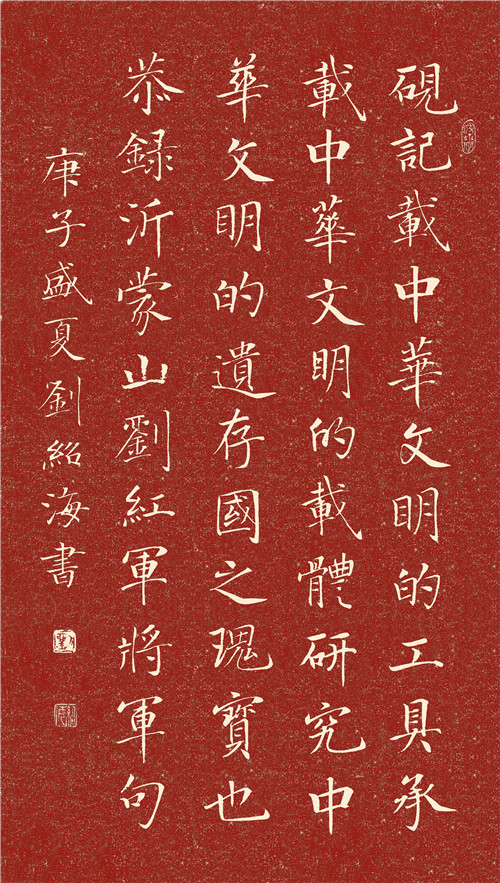 硯記載中華文明的工具承
載中華文明的載體研究中
華文明的遺存國之瑰寶也
恭録沂蒙山劉紅軍將軍句
庚子盛夏劉紹海書